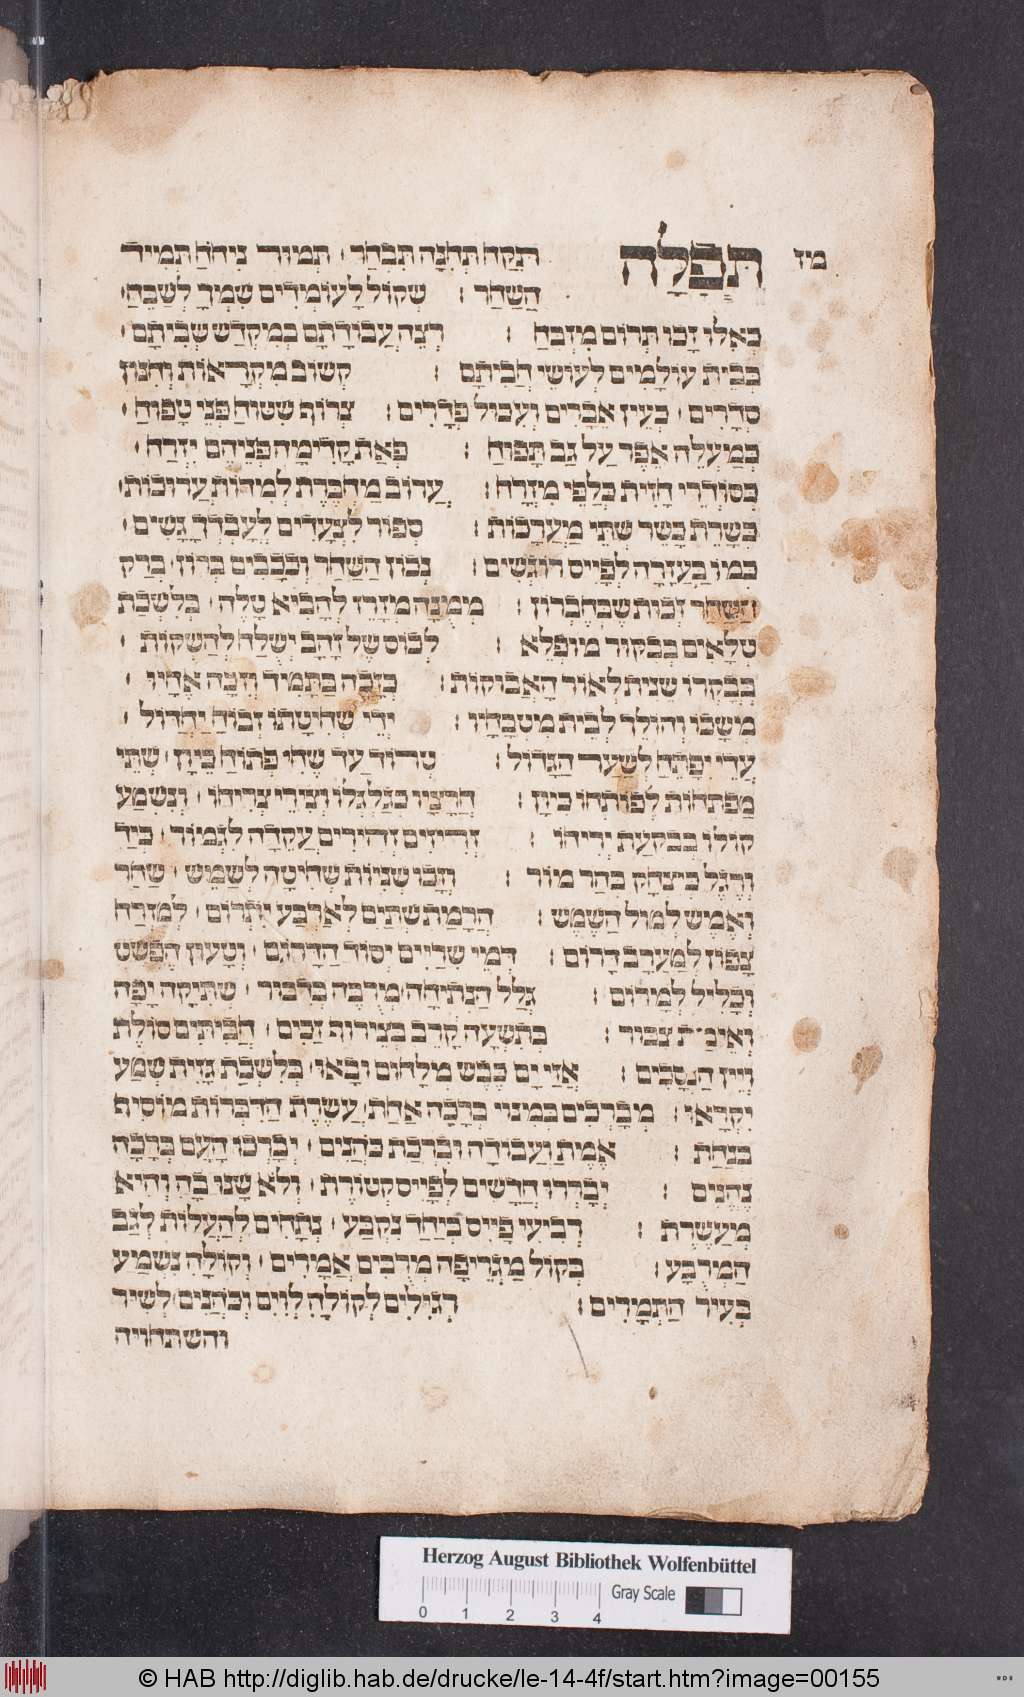 מז
תפלה תקח תחנה תבחר תמור ניחח תמיד
השחר : שקול לעומדים שמך לשבח
כאלו זבו תרום מזבח : רצה עבודתם במקדש שביתם
בבית עולמים לעושי הביתם : קשוב מקראות והגון
סדרים בעין אברים ועכול פדרים : צרוף שטוח פני טפוח
במעלה אפר על גב תפוח : פאת קדימה פניהם יזרח
בסוהרי חזית כלפי מזרח : ערוב מחברת למדות ערוכות
בשרת כשר שתי מערכות : ספור לצעדים לעבדך גשים
כמו בעזרה לפייס הוגשים : נכון השחר וככבים ברוז ברק
השחר זכות שבחברון : ממנה מזרז להביא טלה בלשכת
טלאים בבקור מופלא : לכוס של זהב ישלח להשקות
בבקרו שנית לאור האבוקות : כזכה בתמיד וזכה אחיו
משכו והולך לבית מטבחיו : ידי שחיטתו זבוח יחדול
עדי יפתח לשער הגדול : טרוד עד שהי פתוח כיון שתי
מפתחות לפותחו כיון : חרציו בגלגלו וצירי צריהו ונשמע
קולו בבקעת יריהו : זריזים זהירים עקדה לגמור ביד
ורגל כיצחק בהר מור : וזכו שניות שחיטה לשמש שחר
ואמש למול השמש : הרמת שתים לארבע יתרום למזרח
צפון למערב דרום : דמי שריים יסוד הדרום וטעון הפשט
וכליל למרום : גלל הנתיחה מרבה בדבור שתיקה יפה
ואימת צבור : בתשעה קרב בצירוף זכים חביתים סולת
ויין הנסכים : אזי ים כבש מלחום ובאו בלשכת גזית שמע
יקראו : מברכים במצוי ברכה אחת עשרת הדברות מוסיף
בנחת : אמת ועבודה וברכת כהנים יברכו העם ברכה
נהנים : יבררו חדשים לפייס קטורת ולא שנו בה והיא
מעשרת : רביעי פייס ביחד נקבע נתחים להעלות לגב
המרבע : בקול מגריפה מרבים אמרים וקולה נשמע
בעיר התמרים : רגילים לקולה לוים וכהנים לשיר
והשתחויה
Herzog August Bibliothek Wolfenbüttel
0 1 2 3 4 Gray Scale
© HAB http://diglib.hab.de/drucke/le-14-4f/start.htm?image=00155